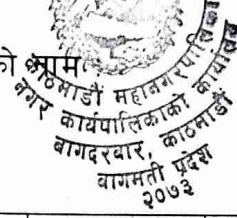 को नाम
काठमाडौं महानगरपालिका
नगर कार्यपालिकाको कार्यालय
बागदरवार, काठमाडौं
बागमती प्रदेश
२०७३